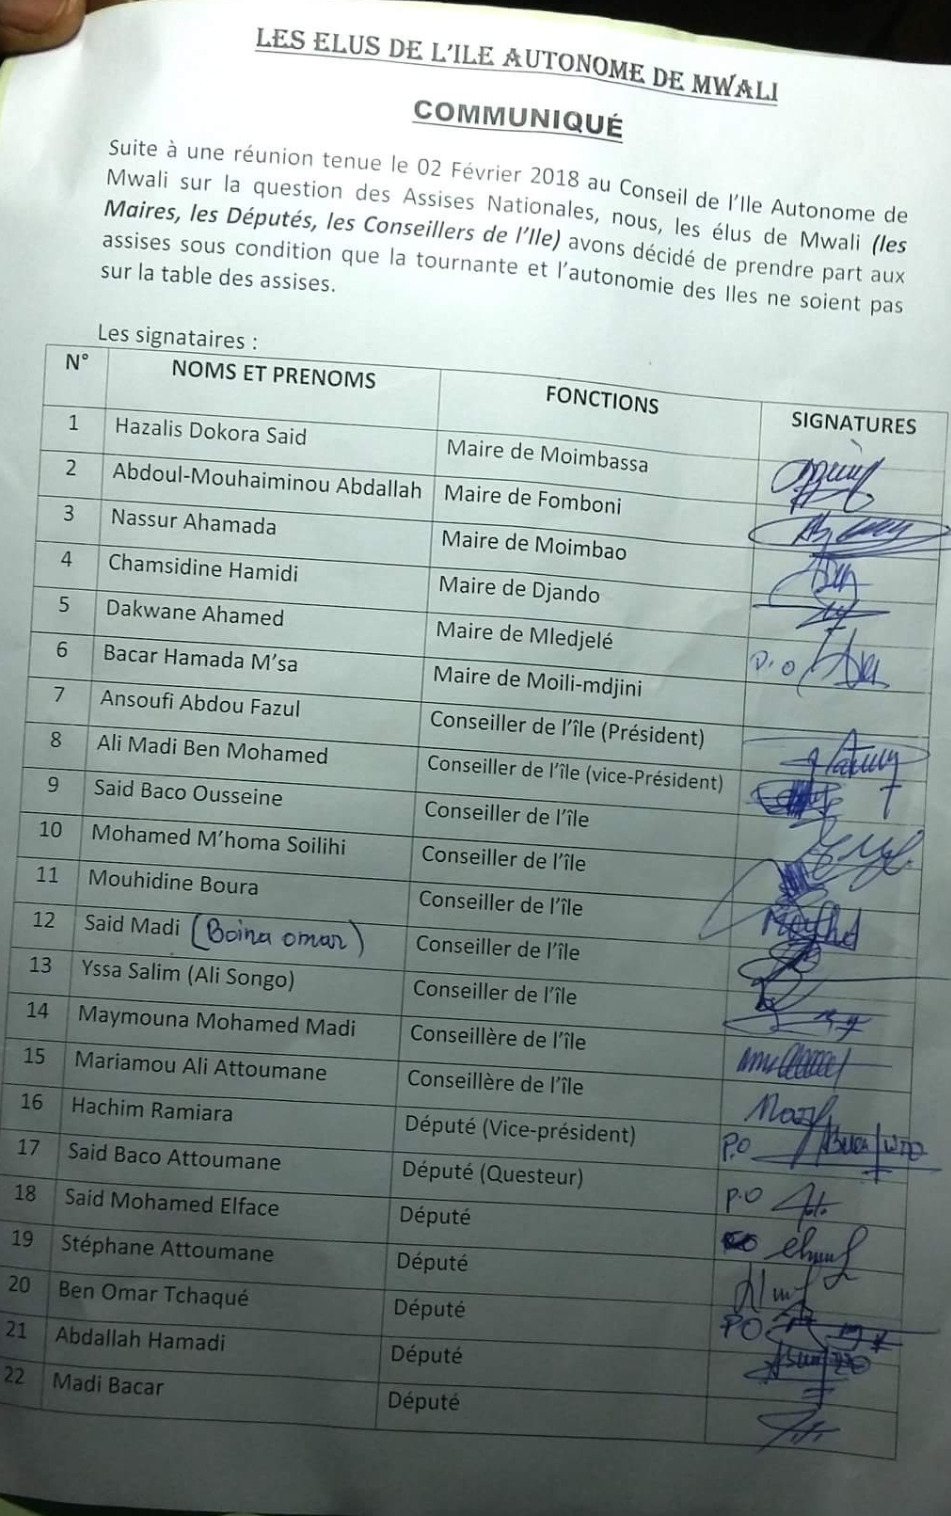 LES ELUS DE L'ILE AUTONOME DE MWALI
COMMUNIQUÉ
Suite à une réunion tenue le 02 Février 2018 au Conseil de l'Ile Autonome de
Mwali sur la question des Assises Nationales, nous, les élus de Mwali (les
Maires, les Députés, les Conseillers de l'Ile) avons décidé de prendre part aux
assises sous condition que la tournante et l'autonomie des Iles ne soient pas
sur la table des assises.
Les signataires :
N° NOMS ET PRENOMS FONCTIONS SIGNATURES
1 Hazalis Dokora Said Maire de Moimbassa
2 Abdoul-Mouhaiminou Abdallah Maire de Fomboni
3 Nassur Ahamada Maire de Moimbao
4 Chamsidine Hamidi Maire de Djando
5 Dakwane Ahamed Maire de Mledjelé P.O
6 Bacar Hamada M'sa Maire de Moili-mdjini
7 Ansoufi Abdou Fazul Conseiller de l'île (Président)
8 Ali Madi Ben Mohamed Conseiller de l'île (vice-Président)
9 Said Baco Ousseine Conseiller de l'île
10 Mohamed M'homa Soilihi Conseiller de l'île
11 Mouhidine Boura Conseiller de l'île
12 Said Madi (Boina omar) Conseiller de l'île
13 Yssa Salim (Ali Songo) Conseiller de l'île
14 Maymouna Mohamed Madi Conseillère de l'île
15 Mariamou Ali Attoumane Conseillère de l'île
16 Hachim Ramiara Député (Vice-président) P.O
17 Said Baco Attoumane Député (Questeur) P.O
18 Said Mohamed Elface Député
19 Stéphane Attoumane Député
20 Ben Omar Tchaqué Député PO
21 Abdallah Hamadi Député
22 Madi Bacar Député